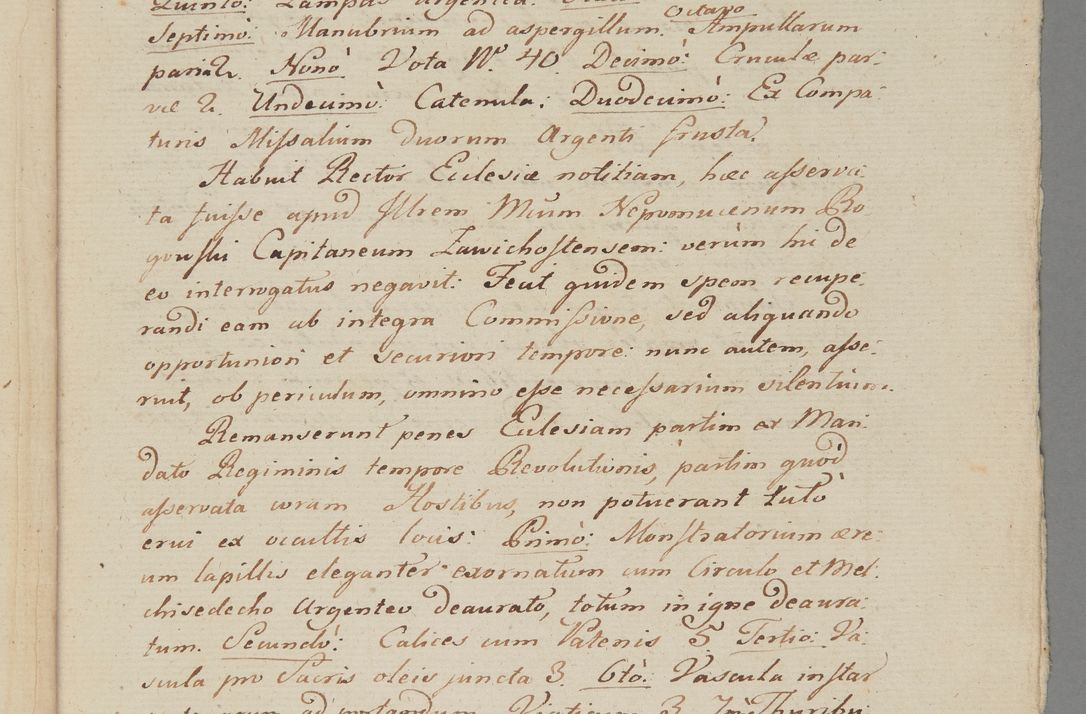 Quinto: Lampas argentea.
Octavo
Septimò: Manubrium ad aspergillum. Ampullarum
paria 2. Nonò Vota Nº 40 Decimò: Cruculæ par-
væ 2. Undecimò: Catenula. Duodecimò: Ex Compa-
turis Missalium duorum Argenti frusta.
Habuit Rector Ecclesiæ notitiam, hæc asserva-
ta fuisse apud Illrem Mcum Nepomucenum Ro
gowski Capitaneum Zawichostensem: verùm hic de
eo interrogatus negavit. Fecit quidem spem recupe-
randi eam ab integra Commissione, sed aliquando
opportuniori et securiori tempore: nunc autem, asse-
ruit, ob periculum, omnino esse necessarium silentium.
Remanserunt penes Ecclesiam partim ex Man-
dato Regiminis tempore Revolutionis, partim quòd
asservata coram Hostibus, non potuerant tutò
erui ex occultis locis: Primò: Monstratorium ære-
um lapillis eleganter exornatum cum Circulo et Mel-
chisedecho Argenteo deaurato, totum in igne deaura-
tum. Secundò: Calices cum Patenis 5 Tertio: Va-
scula pro Sacris oleis juncta 3. 4tò: Vascula instar
ad portandum Viaticum 3.